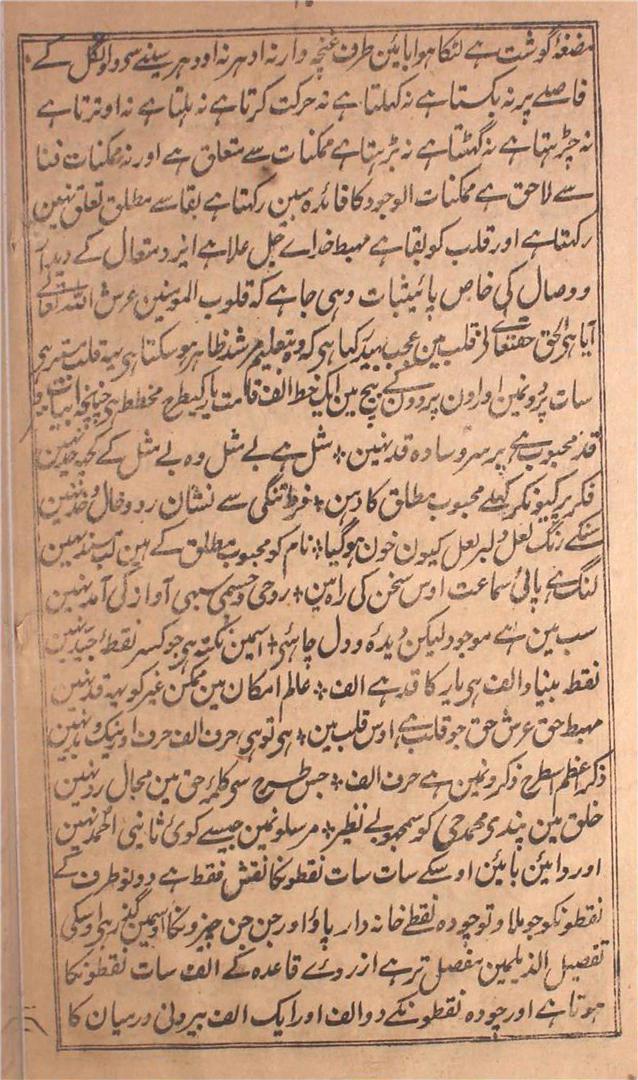 مضغۂ گوشت ہے لٹکا ہوا بائین طرف غنچہ وار نہ اودہر نہ اودہر سینے سے دو اونگل کے
فاصلے پر نہ بکستا ہے نہ کہلتا ہے نہ حرکت کرتا ہے نہ ہلتا ہے نہ اوترتا ہے
نہ چڑہتا ہے نہ گھٹتا ہے نہ بڑہتا ہے ممکنات سے متعلق ہے اور نہ ممکنات فنا
سے لاحق ہے ممکنات الوجود کا فائدہ مبین رکہتا ہے بقا سے مطلق تعلق نہین
رکہتا ہے اور قلب کو بقا ہے مہبط خداے جل علا ہے ایزد متعال کے دیدار
و وصال کی خاص پائیثبات وہی جا ہے کہ قلوب المومنین عرش اللہ تعالے
آیا ہی الحق حقتعالے قلب مین عجب بہید رکہا ہی کہ وہ بتعلیم مرشد ظاہر ہو سکتا ہی یہہ قلب مستر ہی
سات پردونمین اور اون پردون کے بیچ مین ایک خط الف قامت یار کیطرح مخطط ہی چنانچہ ابیات
قد محبوب ہے پر سرو سا وہ قد نہین ؞ مثل ہے بے مثل وہ بے مثل کے کچہہ حد نہین
فکر پر کیونکر کہلے محبوب مطلق کا دہن ؞ فرط تنگی سے نشان رو و خال و خد نہین
سنکے رنگ لعل دلبر لعل کیون خون ہو گیا ؞ نام کو محبوب مطلق کے ہین لب سند نہین
لنگ ہے پائ سماعت اوس سخن کی راہ مین ؞ روحی و جسمی سبہی آواز کی آمد نہین
سب مین ہے موجود لیکن دیدہ و دل چاہئی ؞ اسمین نکتہ ہی جو کسر نقطۂ جید نہین
نقط بینا و الف ہی یار کا قد ہے الف ؞ عالم امکان مین ممکن غیر کو یہہ قد نہین
مہبط حق عرش حق جو قلب ہے اوس قلب مین ؞ ہی تو ہی حرف الف حرف اور نیک و بد نہین
ذکر اعظم اسطرح ذکرونمین ہے حرف الف ؞ جس طرح سی کلمۂ حق مین مجال رد نہین
خلق مین پندی محمد جی کو سمجہو بے نظیر ؞ مرسلونمین جیسے کوئ ثانیئ احمد نہین
اور دائین بائین اوسکے سات سات نقطونکا نقش فقط ہے دونو طرف کے
نقطونکو جو ملاو تو چودہ نقطے خانہ دار پاؤ اور جن جن چیزونکا اوسمین گنج رہی اوسکی
تفصیل الذیلمین مفصل تر ہے از روے قاعدہ کے الف سات نقطونکا
ہوتا ہے اور چودہ نقطونکے دو الف اور ایک الف بیرونی درمیان کا